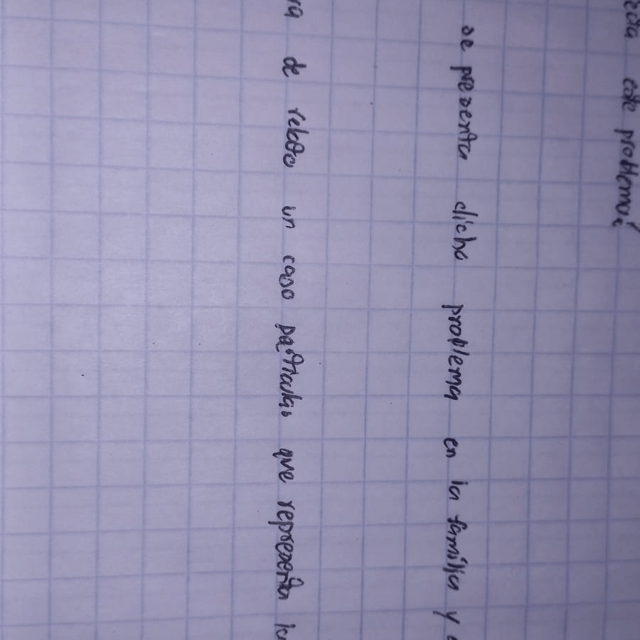 este problema?
se presenta dicho problema en la familia y
de relato un caso particular que representa